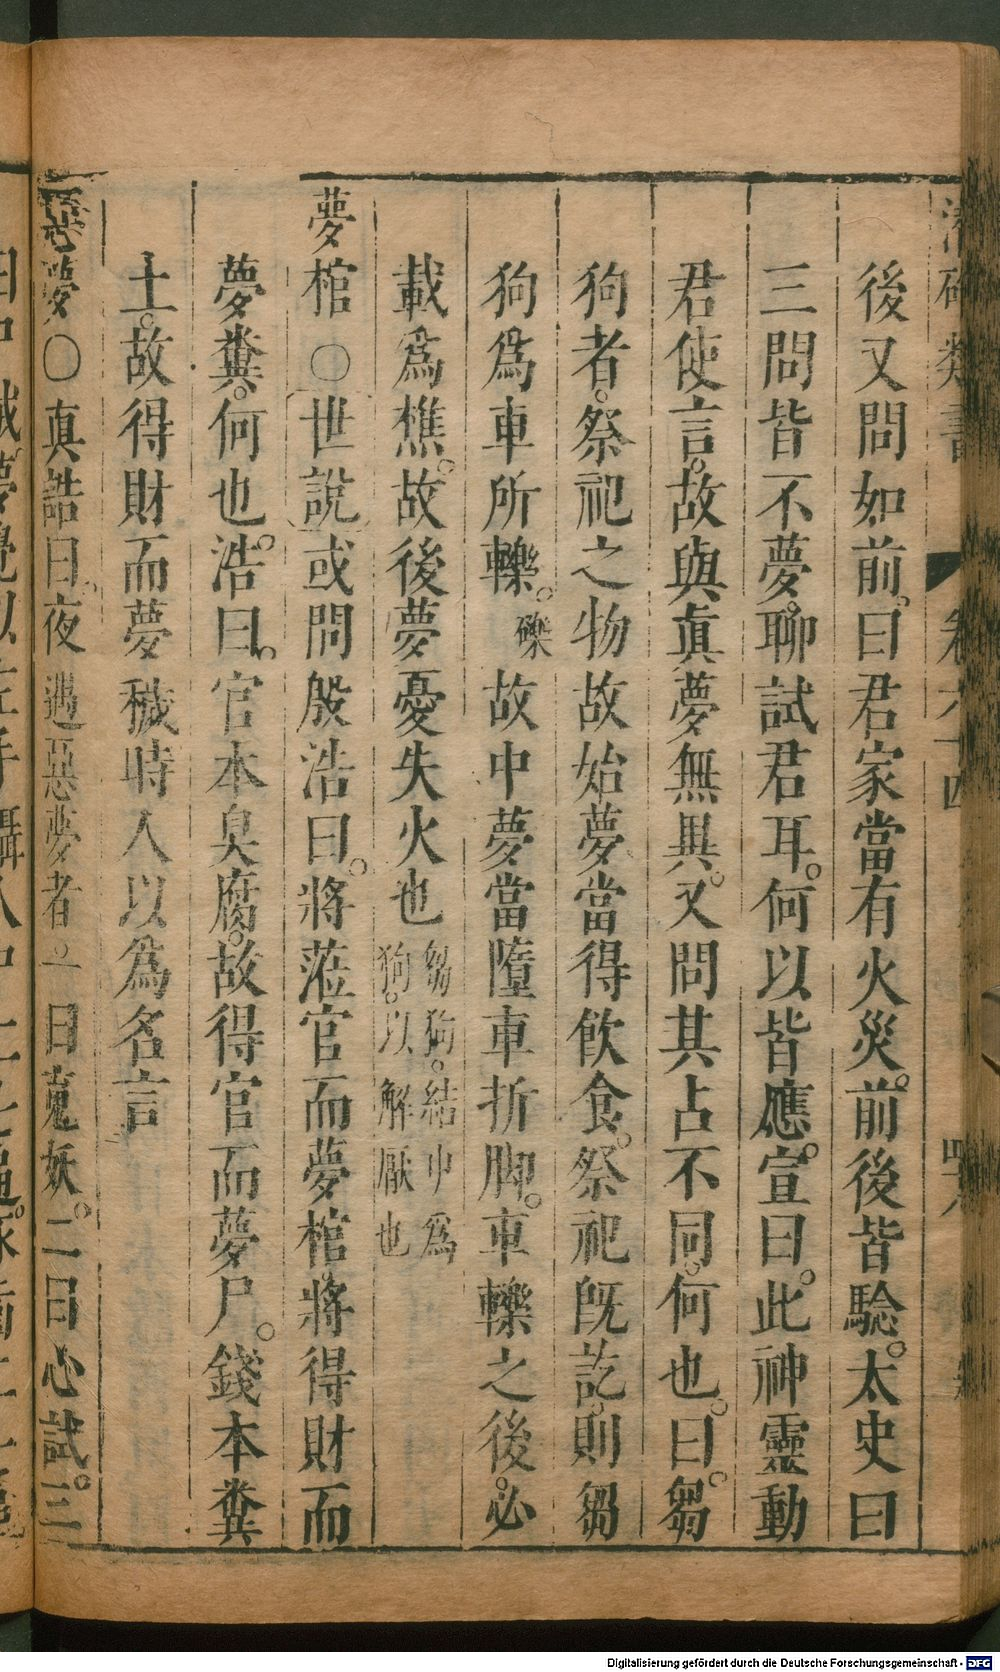 後又問如前。曰君家當有火災。前後皆驗。太史曰
三問皆不夢。聊試君耳。何以皆應。宣曰。此神靈動
君使言。故與眞夢無異。又問其占不同。何也。曰。芻
狗者。祭祀之物故始夢當得飲食。祭祀旣訖。則芻
狗爲車所轢。礫故中夢當墮車折脚。車轢之後。必
載爲樵。故後夢憂失火也芻狗。結巾爲狗。以解厭也
夢棺○世說或問殷浩曰。將蒞官而夢棺將得財而
夢糞。何也。浩曰。官本臭腐。故得官而夢尸。錢本糞
土。故得財而夢穢時人以爲名言
惡夢○真誥曰。夜遇惡夢者一曰䰟妖。二曰心試。三
卷六十四
Digitalisierung gefördert durch die Deutsche Forschungsgemeinschaft - DFG